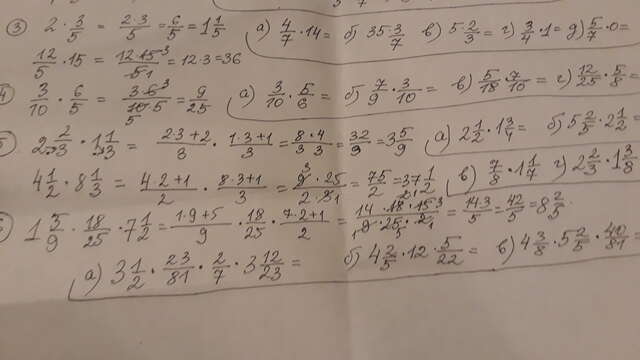 ③ 2 · 3/5 = 2·3/5 = 6/5 = 1 1/5 а) 4/7 · 14 = б) 35 · 3/7 в) 5 · 2/3 = г) 3/4 · 1 = д) 5/7 · 0 =
12/5 · 15 = 12·15³/5₁ = 12·3 = 36
3/10 · 6/5 = 3·6³/10·5 5 = 9/25 а) 3/10 · 5/6 = б) 7/9 · 3/10 = в) 5/18 · 7/10 = г) 12/25 · 5/8 =
2 2/3 · 1 1/3 = 2·3+2/3 · 1·3+1/3 = 8·4/3·3 = 32/9 = 3 5/9 а) 2 1/2 · 1 3/4 = б) 5 2/5 · 2 1/2 =
4 1/2 · 8 1/3 = 4·2+1/2 · 8·3+1/3 = 9³·25/2·3₁ = 75/2 = 37 1/2 в) 7/8 · 1 1/7 г) 2 2/3 · 1 3/8
1 5/9 · 18/25 · 7 1/2 = 1·9+5/9 · 18/25 · 7·2+1/2 = 14·18·15³/9·25·2 = 14·3/5 = 42/5 = 8 2/5
а) 3 1/2 · 23/81 · 2/7 · 3 12/23 = б) 4 2/5 · 12 · 5/22 = в) 4 3/8 · 5 2/5 · 40/81 =